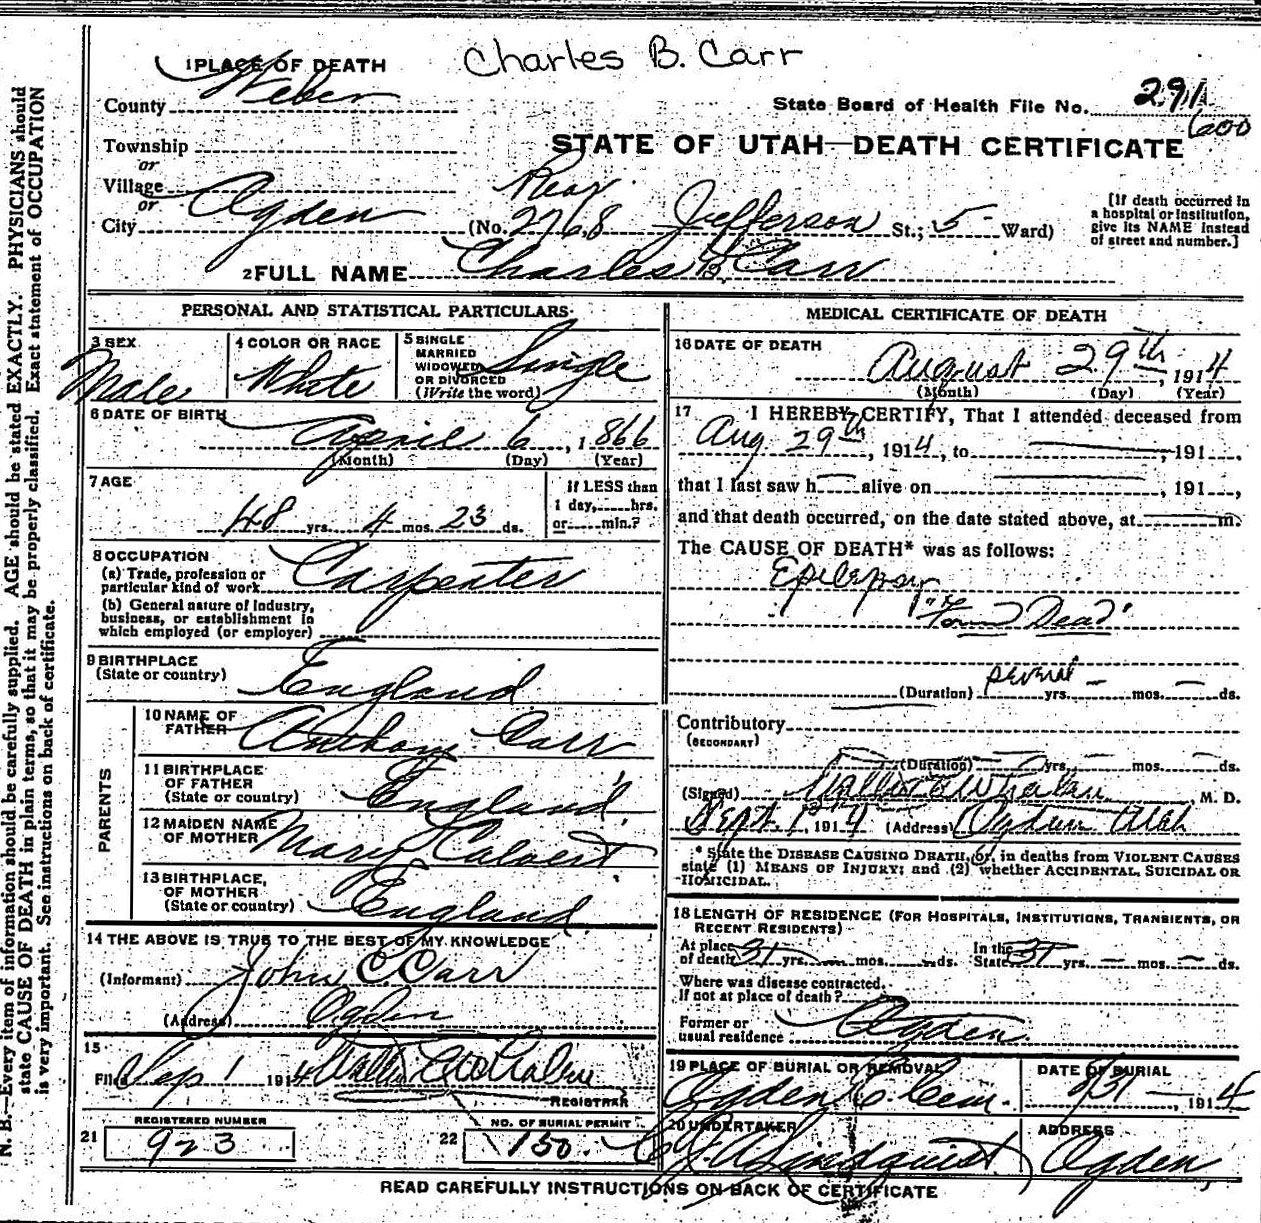 Charles B. Carr
1 PLACE OF DEATH
County Weber
State Board of Health File No. 291
600
Township
or
STATE OF UTAH—DEATH CERTIFICATE
Village
or
Rear
City Ogden (No. 2768 Jefferson St.; 5 Ward)
[If death occurred in
a hospital or institution,
give its NAME instead
of street and number.]
2 FULL NAME Charles B. Carr
PERSONAL AND STATISTICAL PARTICULARS
3 SEX
Male
4 COLOR OR RACE
White
5 SINGLE
MARRIED
WIDOWED
OR DIVORCED
(Write the word)
Single
6 DATE OF BIRTH
April 6, 1866
(Month) (Day) (Year)
7 AGE
48 yrs. 4 mos. 23 ds.
If LESS than
1 day, hrs.
or min.?
8 OCCUPATION
(a) Trade, profession or
particular kind of work Carpenter
(b) General nature of industry,
business, or establishment in
which employed (or employer)
9 BIRTHPLACE
(State or country) England
PARENTS
10 NAME OF
FATHER Anthony Carr
11 BIRTHPLACE
OF FATHER
(State or country) England
12 MAIDEN NAME
OF MOTHER Mary Calvert
13 BIRTHPLACE
OF MOTHER
(State or country) England
14 THE ABOVE IS TRUE TO THE BEST OF MY KNOWLEDGE
(Informant) John C. Carr
(Address) Ogden
15
Filed Sep 1 1914 Walter E Whalen
REGISTRAR
21 REGISTERED NUMBER
923
22 NO. OF BURIAL PERMIT
150.
MEDICAL CERTIFICATE OF DEATH
16 DATE OF DEATH
August 29th, 1914
(Month) (Day) (Year)
17 I HEREBY CERTIFY, That I attended deceased from
Aug. 29th, 1914, to , 191 ,
that I last saw h alive on , 191 ,
and that death occurred, on the date stated above, at m.
The CAUSE OF DEATH* was as follows:
Epilepsy
"Found Dead"
(Duration) several yrs. — mos. — ds.
Contributory
(SECONDARY)
(Duration) — yrs. — mos. — ds.
(Signed) Walter E Whalen, M. D.
Sept. 1st, 1914 (Address) Ogden Utah
* State the DISEASE CAUSING DEATH, or, in deaths from VIOLENT CAUSES
state (1) MEANS OF INJURY; and (2) whether ACCIDENTAL, SUICIDAL OR
HOMICIDAL.
18 LENGTH OF RESIDENCE (FOR HOSPITALS, INSTITUTIONS, TRANSIENTS, OR
RECENT RESIDENTS)
At place
of death 31 yrs. — mos. — ds.
In the
State 31 yrs. — mos. — ds.
Where was disease contracted,
If not at place of death?
Former or
usual residence Ogden.
19 PLACE OF BURIAL OR REMOVAL
Ogden C. Cem.
DATE OF BURIAL
8/31 — , 1914
20 UNDERTAKER
Lindquist
ADDRESS
Ogden,
READ CAREFULLY INSTRUCTIONS ON BACK OF CERTIFICATE
N. B.—Every item of information should be carefully supplied. AGE should be stated EXACTLY. PHYSICIANS should
state CAUSE OF DEATH in plain terms, so that it may be properly classified. Exact statement of OCCUPATION
is very important. See instructions on back of certificate.